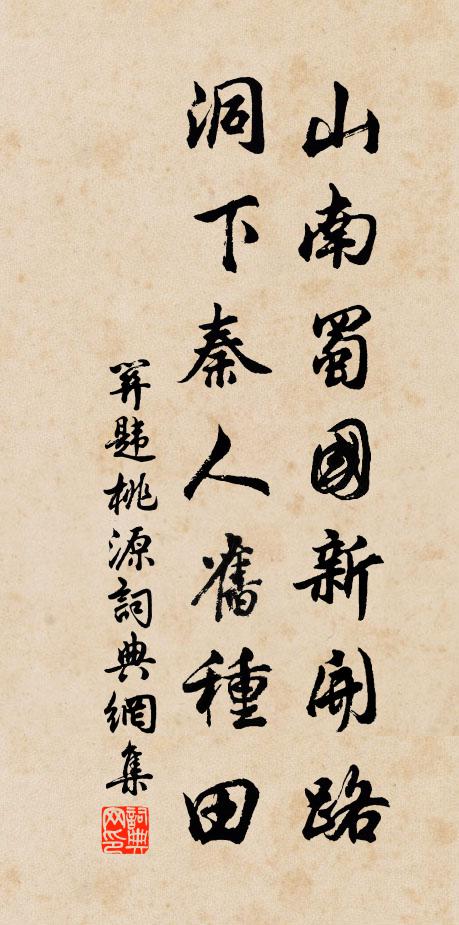 山南蜀國新開路
洞下秦人舊種田
題桃源詞典網集
詞典
网印